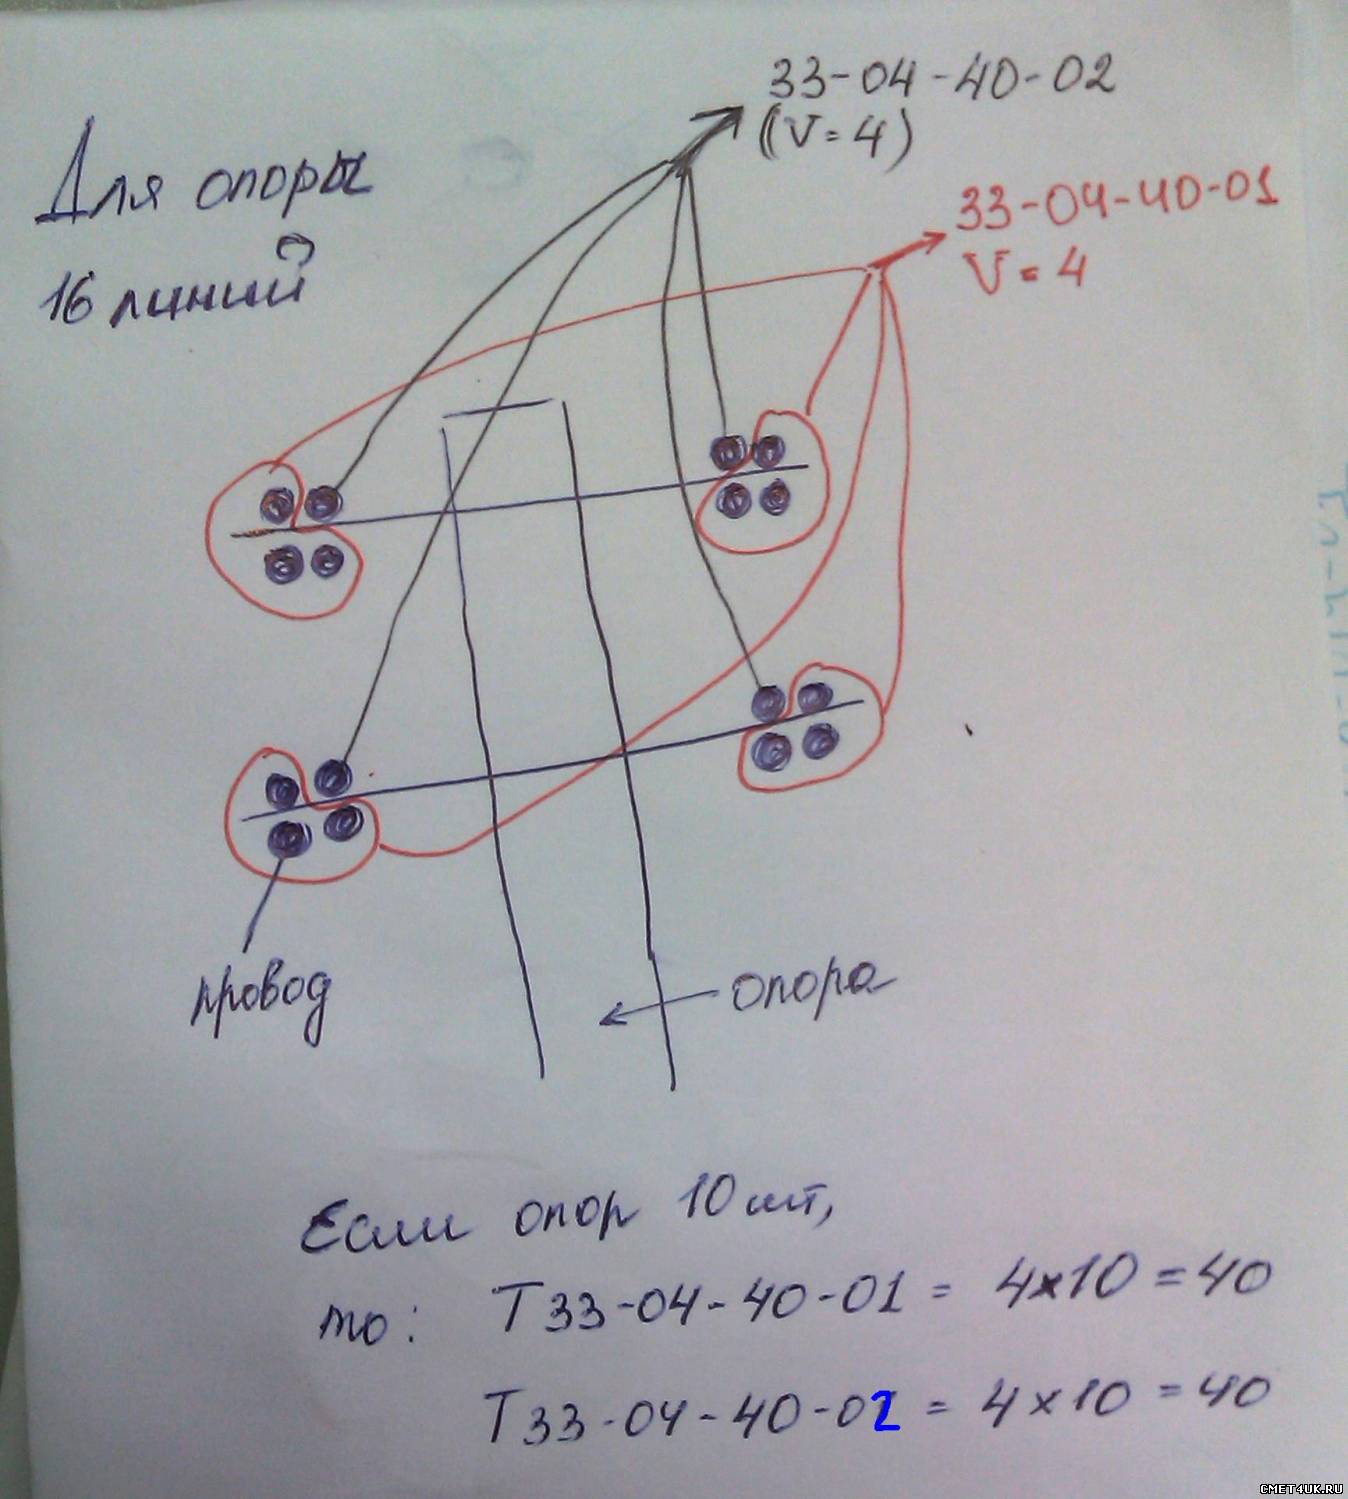 33-04-40-02
(V=4)
Для опоры
16 линий
33-04-40-01
V=4
провод
опора
Если опор 10 шт,
то: Т33-04-40-01 = 4×10 = 40
Т33-04-40-02 = 4×10 = 40
CMET4UK.RU